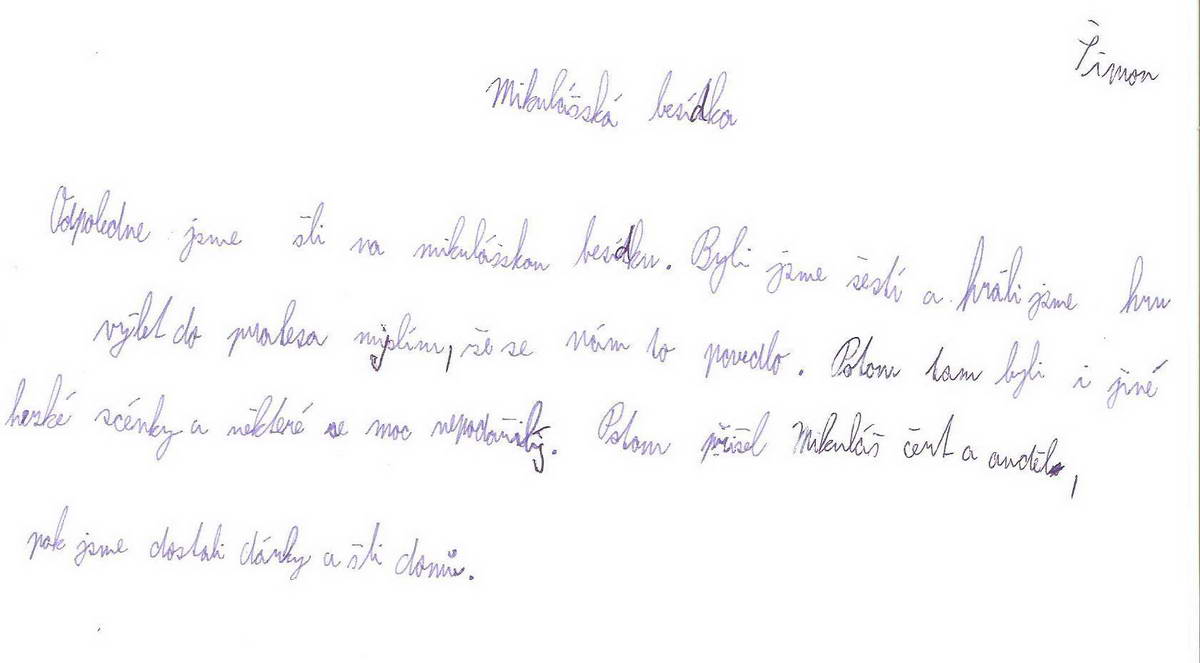 Šimon
Mikulášská besídka
Odpoledne jsme šli na mikulášskou besídku. Byli jsme šestí a hráli jsme hru
výlet do pralesa myslím, že se nám to povedlo. Potom tam byli i jiné
hezké scénky a některé se moc nepodařily. Potom přišel Mikuláš čert a anděl,
pak jsme dostali dárky a šli domů.